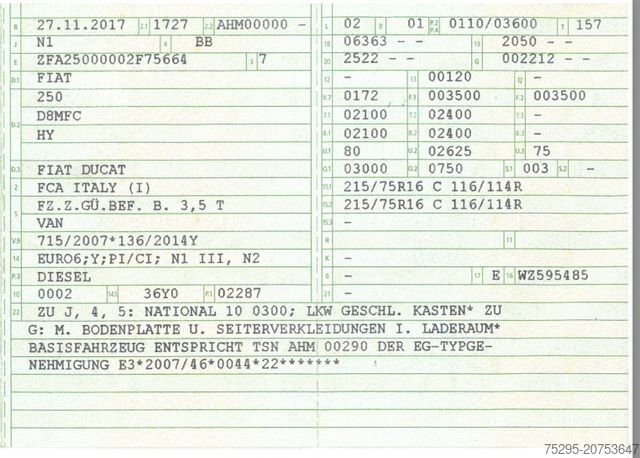 B 27.11.2017 2.1 1727 2.2 AHM00000 - L 02 9 01 P.2 P.4 0110/03600 T 157
J N1 4 BB 18 06363 - - 19 2050 - -
E ZFA25000002F75664 3 7 20 2522 - - G 002212 - -
D.1 FIAT 12 - 13 00120 Q -
250 V.7 0172 F.1 003500 F.2 003500
D.2 D8MFC 7.1 02100 7.2 02400 7.3 -
HY 8.1 02100 8.2 02400 8.3 -
U.1 80 U.2 02625 U.3 75
D.3 FIAT DUCAT O.1 03000 O.2 0750 S.1 003 S.2 -
2 FCA ITALY (I) 15.1 215/75R16 C 116/114R
5 FZ.Z.GÜ.BEF. B. 3,5 T 15.2 215/75R16 C 116/114R
VAN 15.3 -
V.9 715/2007*136/2014Y R 11
14 EURO6;Y;PI/CI; N1 III, N2 K -
P.3 DIESEL 6 - 17 E 16 WZ595485
10 0002 14.1 36Y0 P.1 02287 21 -
22 ZU J, 4, 5: NATIONAL 10 0300; LKW GESCHL. KASTEN* ZU
G: M. BODENPLATTE U. SEITERVERKLEIDUNGEN I. LADERAUM*
BASISFAHRZEUG ENTSPRICHT TSN AHM 00290 DER EG-TYPGE-
NEHMIGUNG E3*2007/46*0044*22*******
75295-20753647